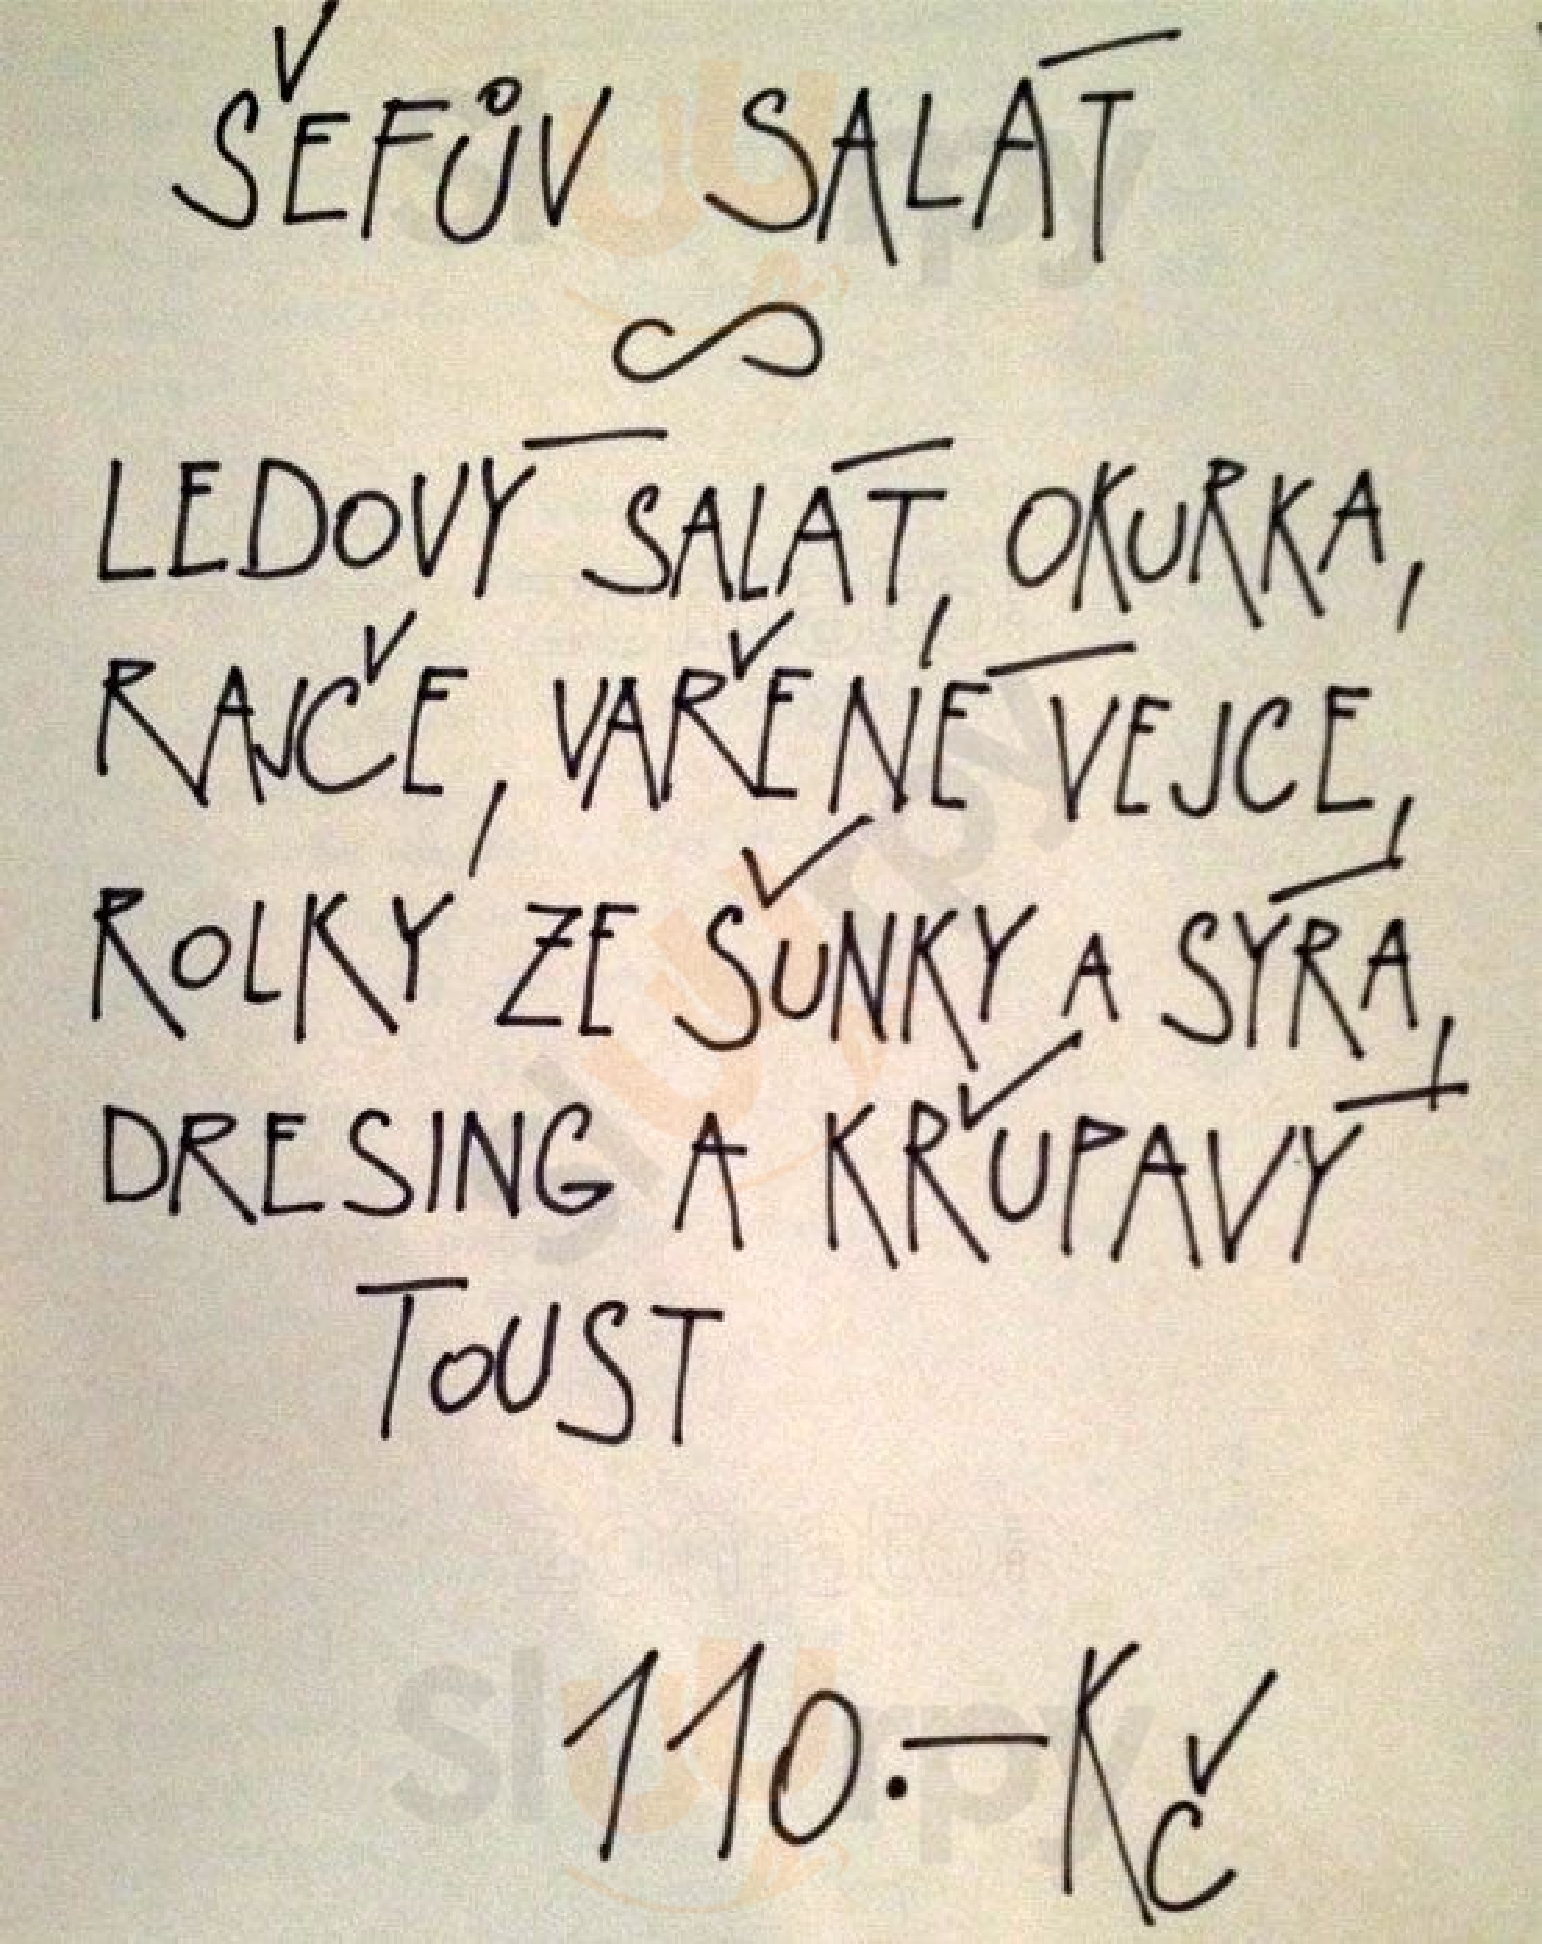 ŠEFŮV SALÁT
LEDOVÝ SALÁT, OKURKA,
RAJČE, VAŘENÉ VEJCE,
ROLKY ZE ŠUNKY A SÝRA,
DRESING A KŘUPAVÝ
TOUST
110.-Kč